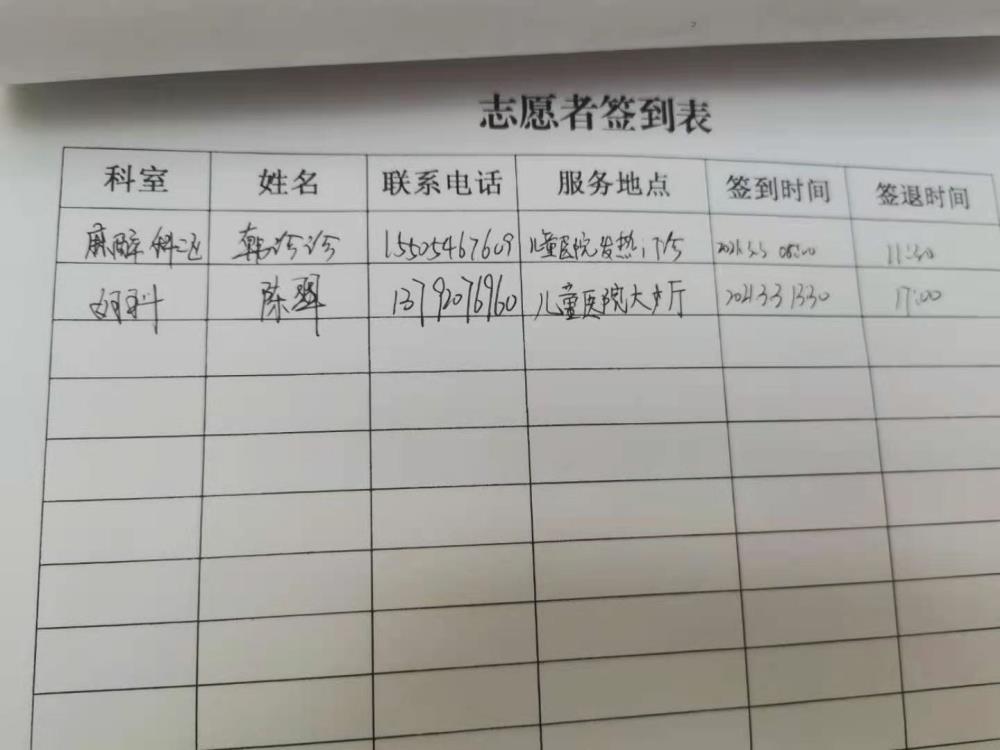 志愿者签到表
科室 姓名 联系电话 服务地点 签到时间 签退时间
麻醉科二区 韩冷冷 15505467609 儿童医院发热门诊 2021.3.3 08:00 11:30
妇科 陈翠 13792076960 儿童医院大厅 2021.3.3 13:30 17:00